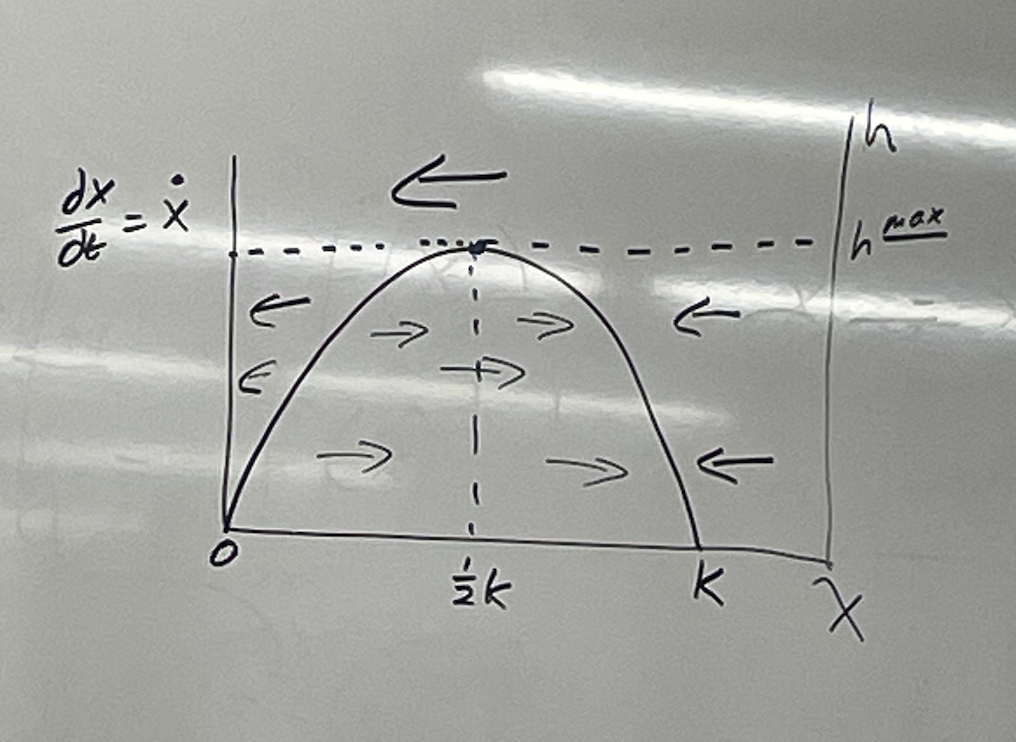 h
dx/dt = ẋ
h max
0
½k
K
X